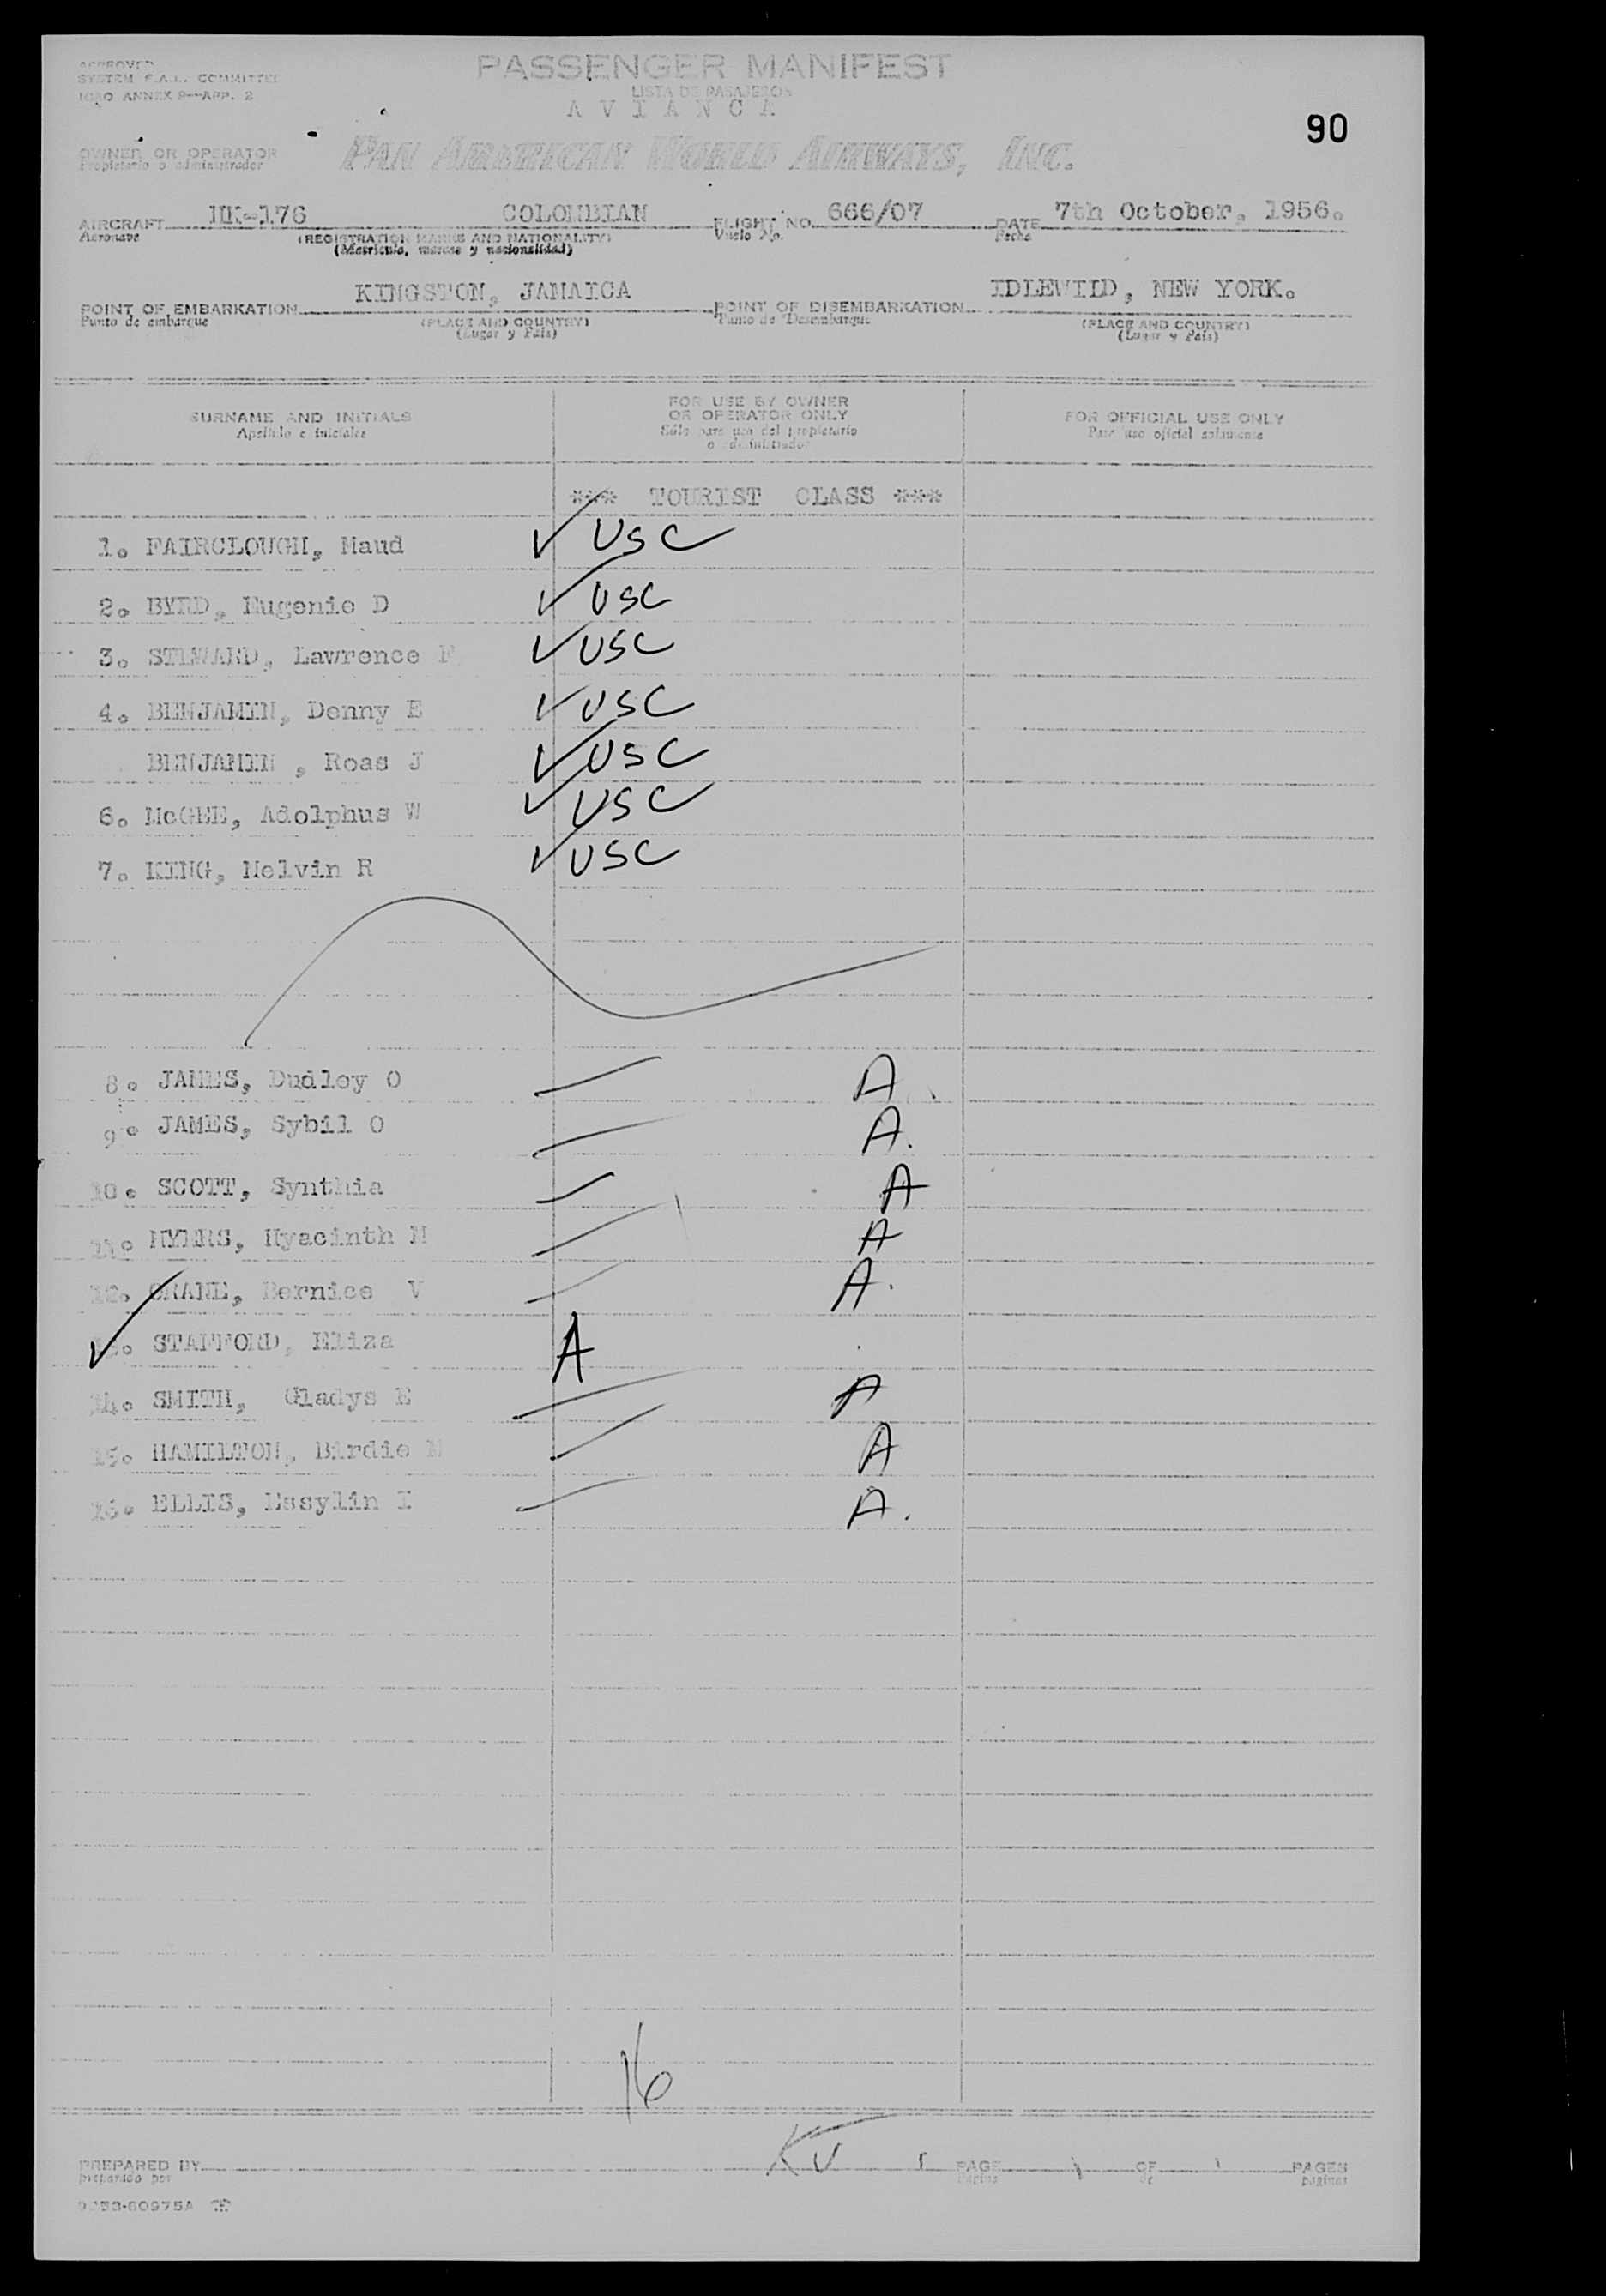 APPROVED
SYSTEM F.A.L. COMMITTEE
ICAO ANNEX 9—APP. 2
PASSENGER MANIFEST
LISTA DE PASAJEROS
AVIANCA
90
OWNER OR OPERATOR
Propietario o administrador
PAN AMERICAN WORLD AIRWAYS, INC.
AIRCRAFT HK-176 COLOMBIAN FLIGHT NO. 666/07 DATE 7th October, 1956.
Aeronave (REGISTRATION MARKS AND NATIONALITY) Vuelo No. Fecha
(Matrícula, marcas y nacionalidad)
POINT OF EMBARKATION KINGSTON, JAMAICA POINT OF DISEMBARKATION IDLEWILD, NEW YORK.
Punto de embarque (PLACE AND COUNTRY) Punto de Desembarque (PLACE AND COUNTRY)
(Lugar y País) (Lugar y País)
SURNAME AND INITIALS FOR USE BY OWNER OR OPERATOR ONLY FOR OFFICIAL USE ONLY
Apellido e iniciales Sólo para uso del propietario o administrador Para uso oficial solamente
*** TOURIST CLASS ***
1. FAIRCLOUGH, Maud ✓ USC
2. BYRD, Eugenie D ✓ USC
3. STEWARD, Lawrence F ✓ USC
4. BENJAMIN, Denny E ✓ USC
BENJAMIN , Roas J ✓ USC
6. McGEE, Adolphus W ✓ USC
7. KING, Melvin R ✓ USC
8. JAMES, Dudley O A
9. JAMES, Sybil O A.
10. SCOTT, Synthia A
11. MYERS, Hyacinth M A
12. CRANE, Bernice V A.
✓ 13. STAFFORD, Eliza A
14. SMITH, Gladys E A
15. HAMILTON, Birdie M A
16. ELLIS, Essylin I A.
16
PREPARED BY KV PAGE 1 OF 1 PAGES
preparado por página de páginas